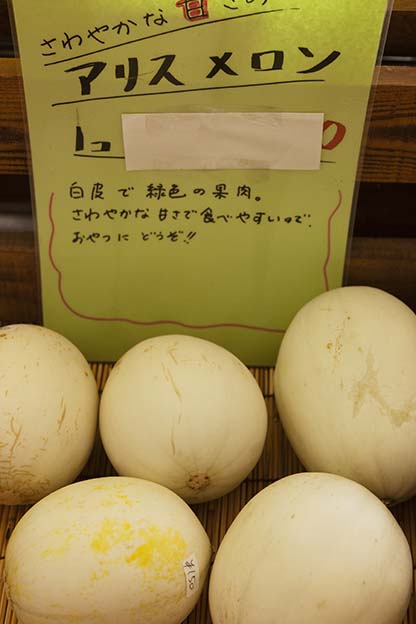 さわやかな 甘さの
アリスメロン
1コ 0
白皮で緑色の果肉。
さわやかな甘さで食べやすいので、
おやつに どうぞ!!
¥150